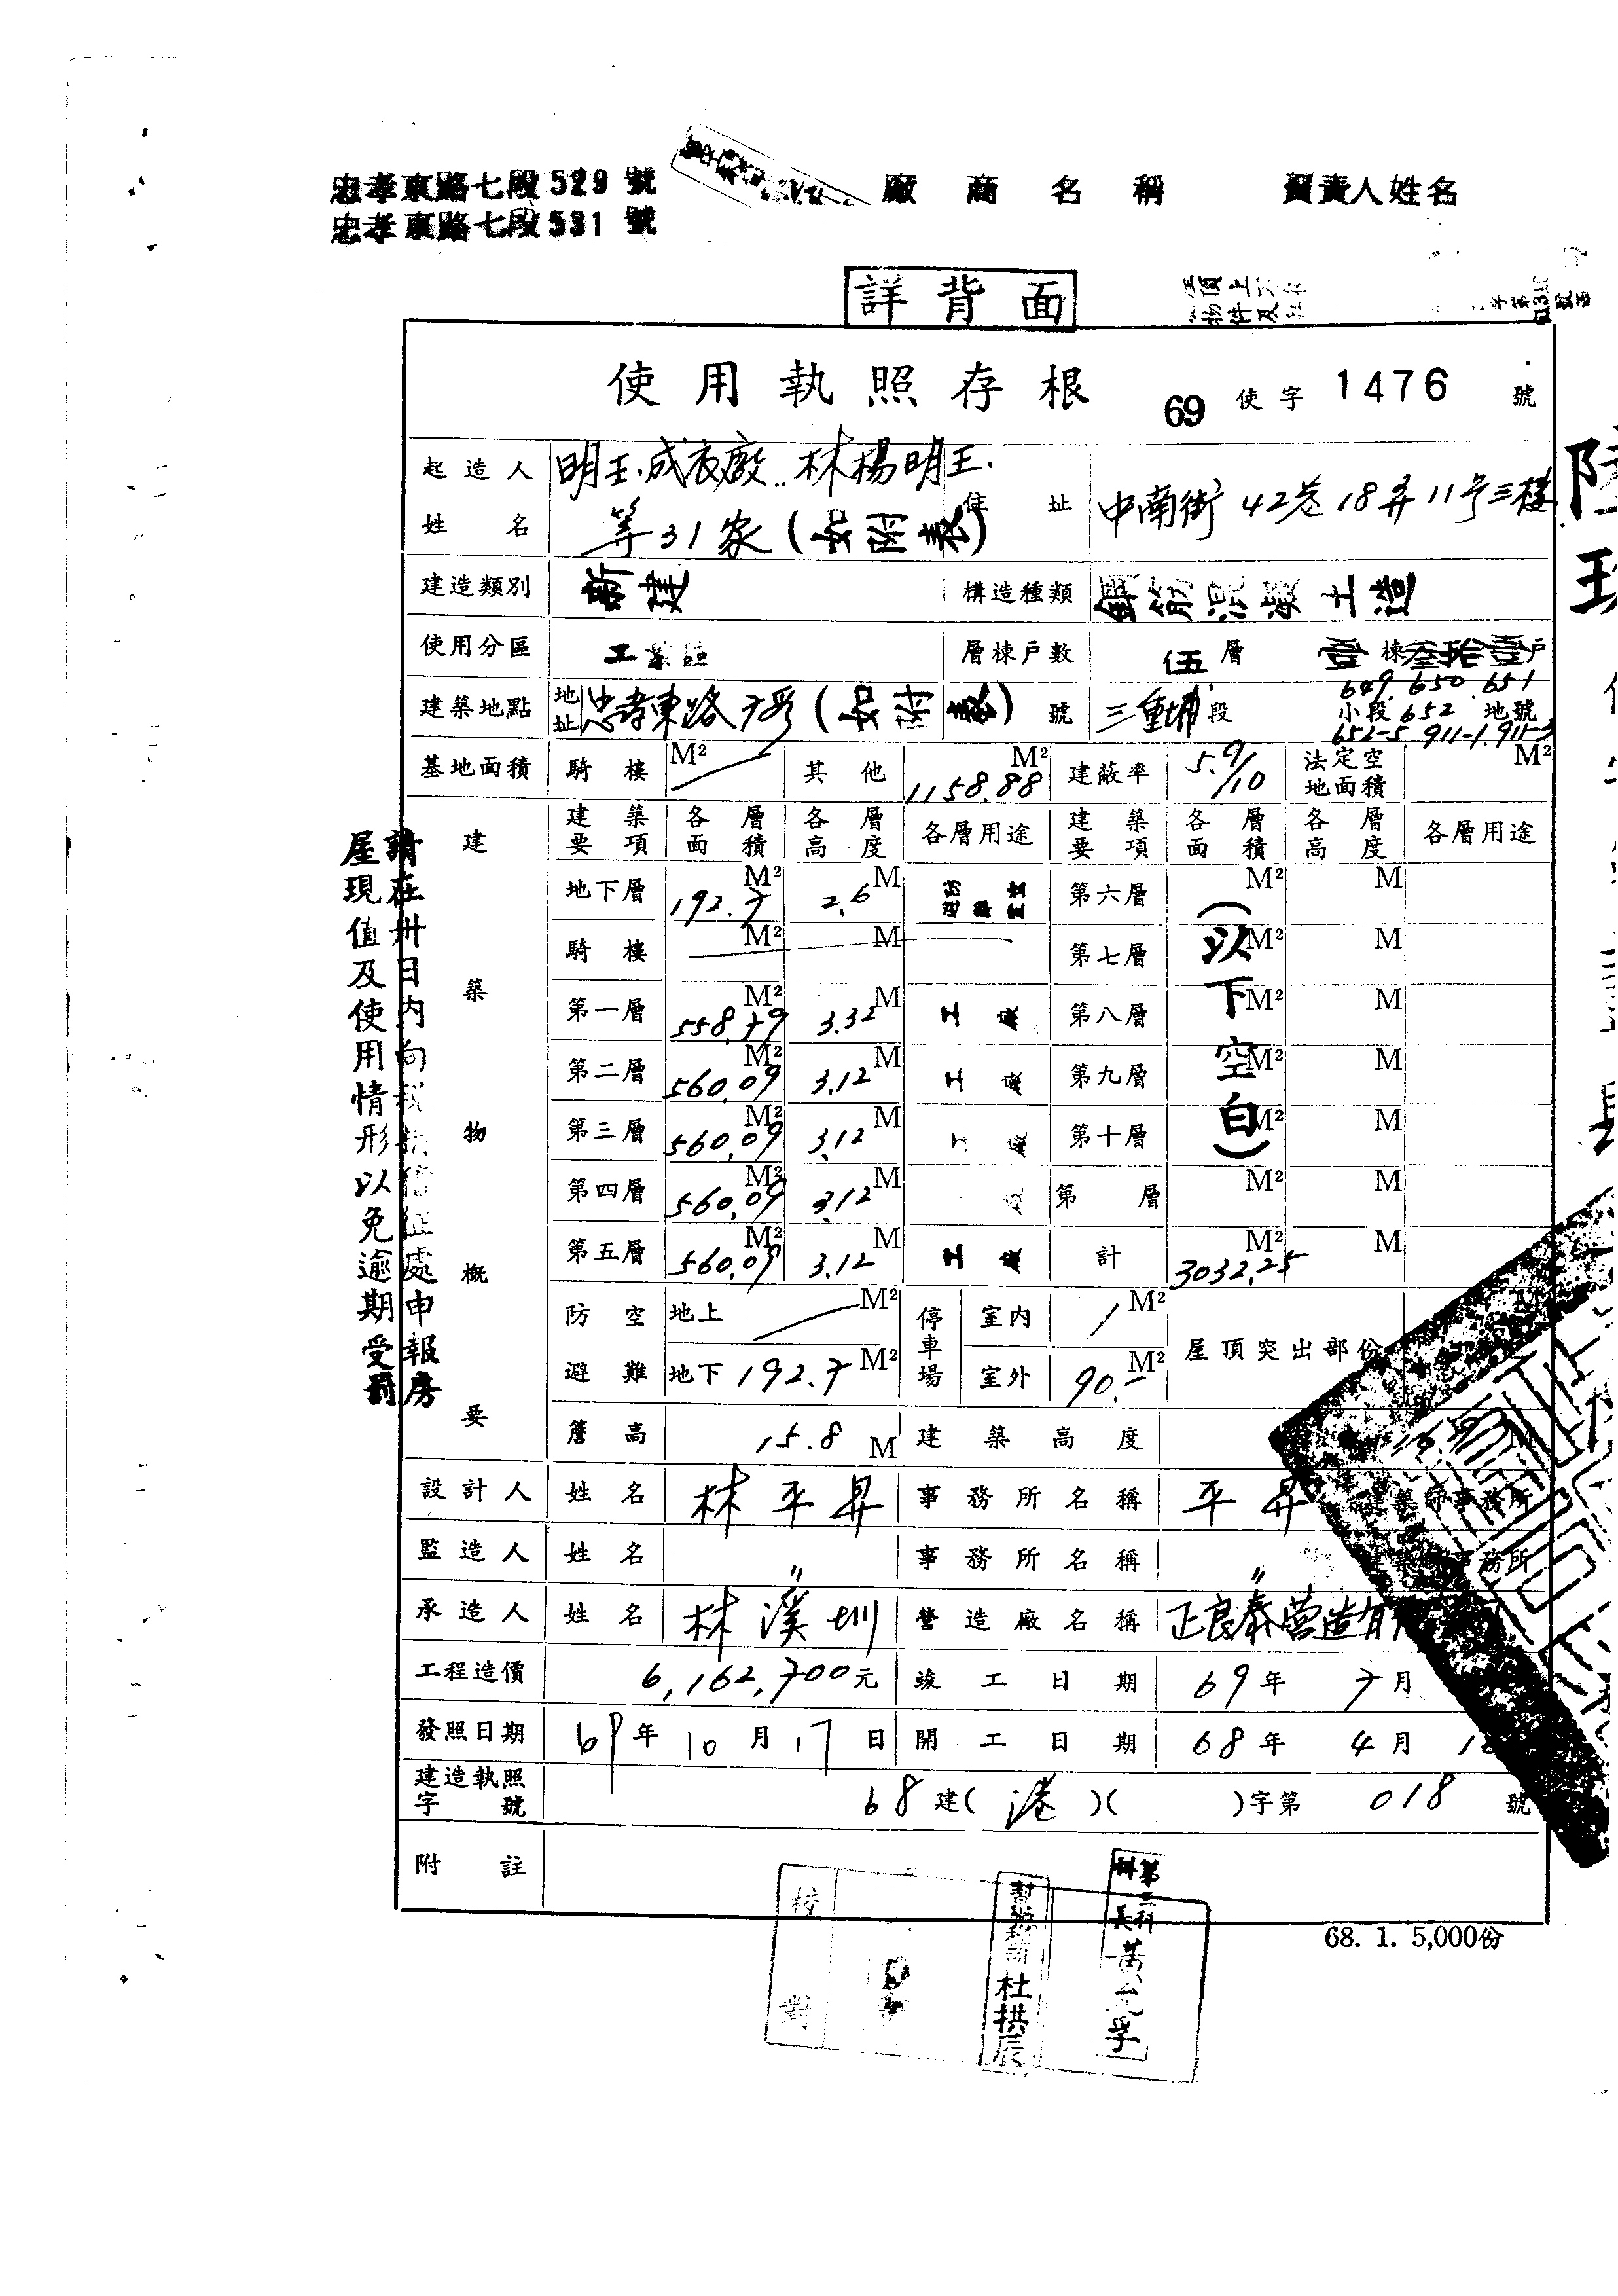 忠孝東路七段529號
忠孝東路七段531號
廠商名稱 負責人姓名
詳背面
使用執照存根 69 使字 1476 號
起造人姓名 明王成衣廠 林楊明王 等31家(如附表) 住址 中南街42巷18弄11号三樓
建造類別 新建 構造種類 鋼筋混凝土造
使用分區 工業區 層棟戶數 伍層 壹棟叁拾壹戶
建築地點 地址 忠孝東路7段(如附表)號 三重埔段 小段 649.650.651 652 地號 652-5 911-1.911-3
基地面積 騎樓 M² 其他 1158.88 M² 建蔽率 5.9/10 法定空地面積 M²
建築物概要
建築要項 各層面積 各層高度 各層用途 建築要項 各層面積 各層高度 各層用途
地下層 192.7 M² 2.6 M 第六層 M² M
騎樓 M² M 第七層 M² M
第一層 558.79 M² 3.32 M 工廠 第八層 M² M
第二層 560.09 M² 3.12 M 工廠 第九層 M² M
第三層 560.09 M² 3.12 M 工廠 第十層 M² M
第四層 560.09 M² 3.12 M 廠 第 層 M² M
第五層 560.09 M² 3.12 M 工廠 計 3032.25 M² M
(以下空白)
防空避難 地上 M² 停車場 室內 M² 屋頂突出部份
地下 192.7 M² 室外 90.- M²
簷高 15.8 M 建築高度 M
設計人 姓名 林平昇 事務所名稱 平昇 建築師事務所
監造人 姓名 〃 事務所名稱 〃 建築師事務所
承造人 姓名 林溪圳 營造廠名稱 正良泰營造有
工程造價 6,162,700元 竣工日期 69年 7月
發照日期 69年10月17日 開工日期 68年 4月
建造執照字號 68建(港)( )字第 018 號
附註
請在卅日內向稅捐稽征處申報房
屋現值及使用情形以免逾期受罰
68. 1. 5,000份
校對
杜拱辰
第三科科長